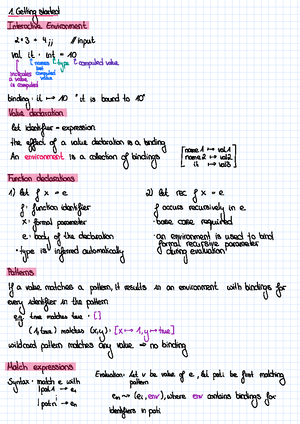 1. Getting started
Interactive Environment
2*3 + 4;; #input
val it : int = 10
names type computed value
last computed value
indicates a value is computed
binding: it ↦ 10 "it is bound to 10"
Value declaration
let identifier = expression
the effect of a value declaration is a binding
An environment is a collection of bindings
[name1 ↦ val1
name2 ↦ val2
it ↦ val3]
Function declarations
1) let f x = e
f: function identifier
x: formal parameter
e: body of the declaration
· type is inferred automatically
2) let rec f x = e
f occurs recursively in e.
base case required
· an environment is used to bind
formal recursive parameter
during evaluation
Patterns
If a value matches a pattern, it results in an environment with bindings for
every identifier in the pattern
eg. true matches true · []
(1,true) matches (x,y): [x ↦ 1, y ↦ true]
wildcard pattern matches any value ⇒ no binding
Match expressions
Syntax: match e with
| pat1 → e1
| patn → en
Evaluation: Let v be value of e, let pati be first matching
pattern
(ei, env), where env contains bindings for
identifiers in pati